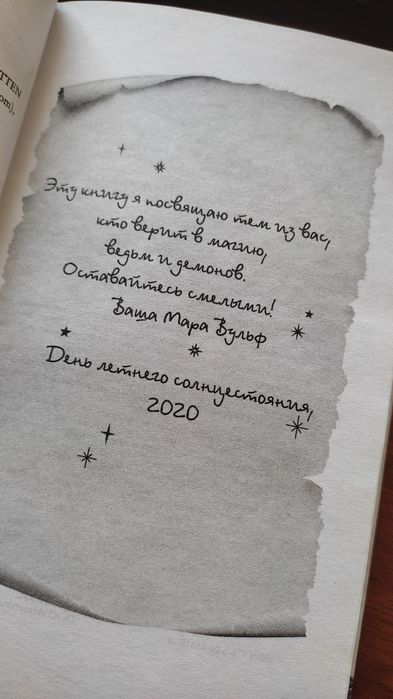 TTEN
om),
Эту книгу я посвящаю тем из вас,
кто верит в магию,
ведьм и демонов.
Оставайтесь смелыми!
Ваша Мара Вульф
День летнего солнцестояния,
2020